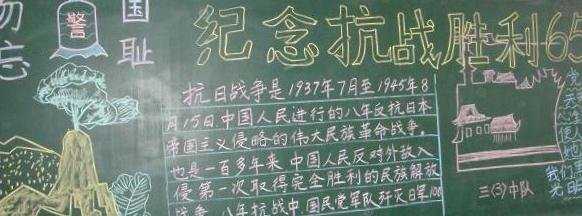 勿忘
国耻
警
纪念抗战胜利65
抗日战争是1937年7月至1945年8
月15日中国人民进行的八年反抗日本
帝国主义侵略的伟大民族革命战争。
也是一百多年来中国人民反对外敌入
侵第一次取得完全胜利的民族解放
战争。八年抗战中国民党军队歼灭日军100
三(3)中队